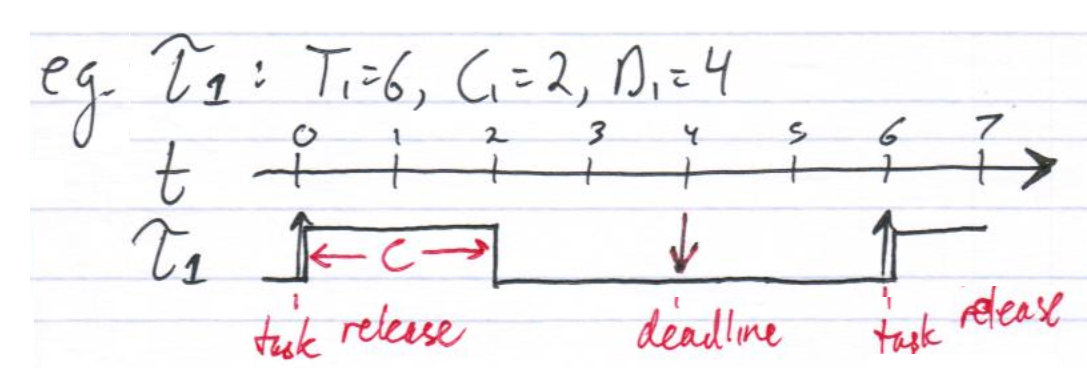 eg. τ1: T1=6, C1=2, D1=4
0 1 2 3 4 5 6 7
t
τ1 C
task release deadline task release